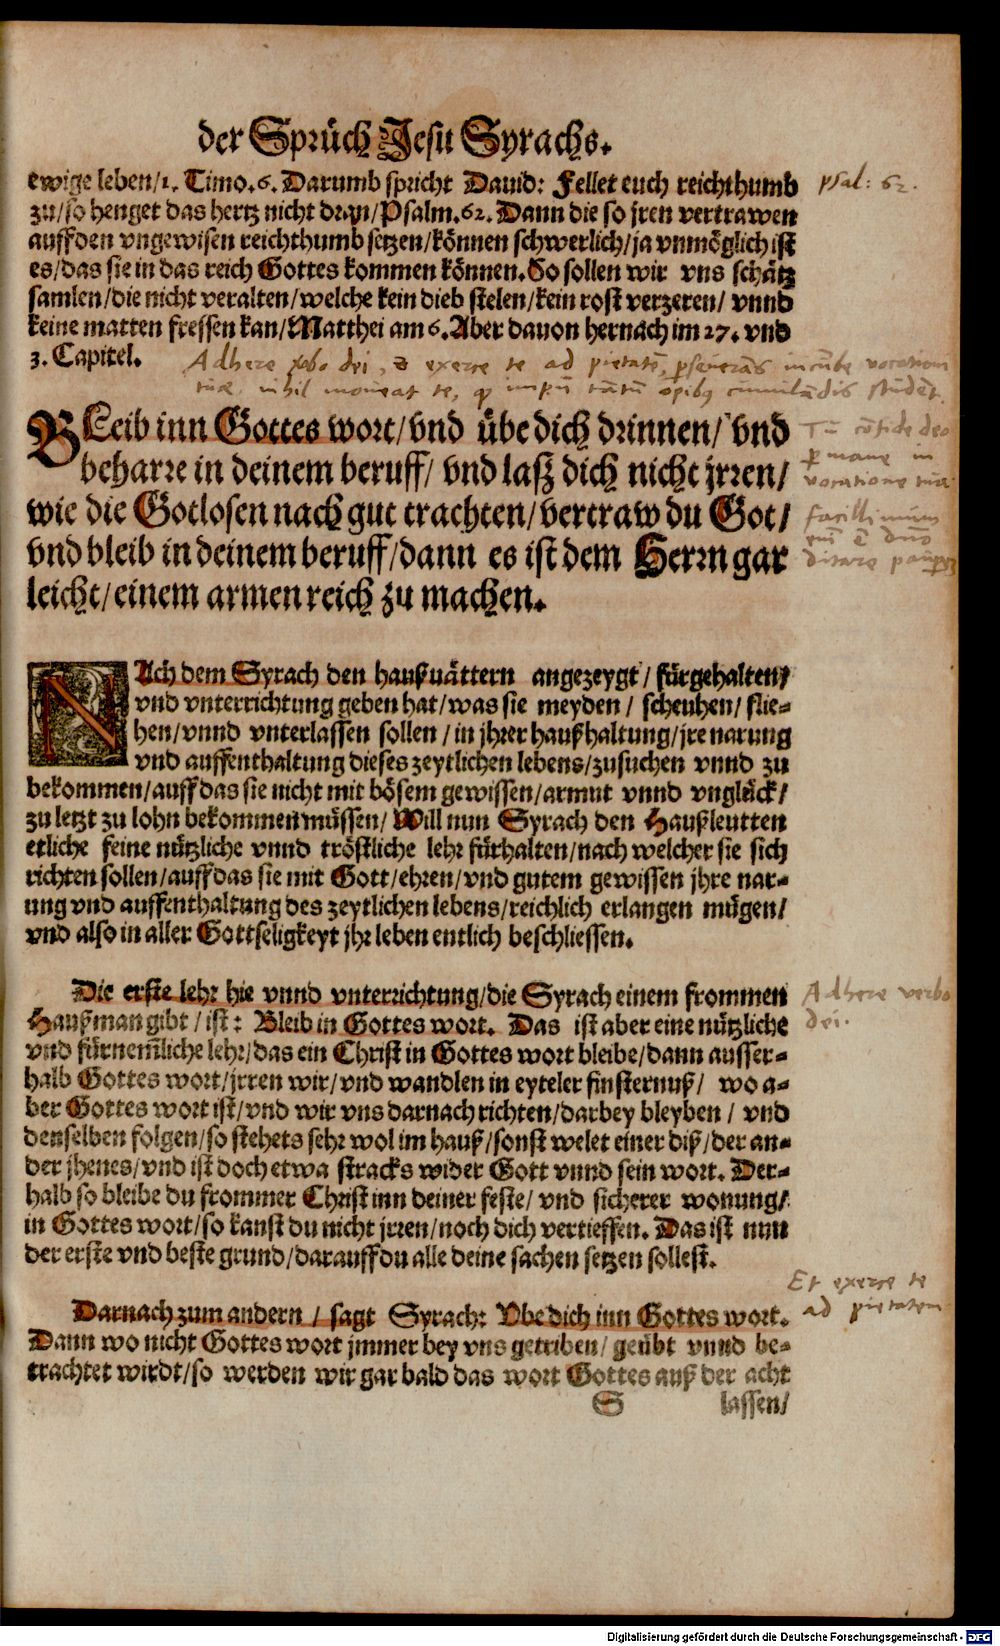 der Sprüch Jesu Syrachs.
ewige leben/1. Timo. 6. Darumb spricht Dauid: Fellet euch reichthumb
psal: 62.
zu/so henget das hertz nicht dran/Psalm. 62. Dann die so jren vertrawen
auff den vngewisen reichthumb setzen/können schwerlich/ja vnmöglich ist
es/das sie in das reich Gottes kommen können. So sollen wir vns schätz
samlen/die nicht veralten/welche kein dieb stelen/kein rost verzeren/ vnnd
keine matten fressen kan/Matthei am 6. Aber dauon hernach im 27. vnd
3. Capitel.
Adhere verbo dei, & exerce te ad pietatē, pseuerās incūbe vocationi
tuæ, nihil moueat te, impij tātū opibus cumulādis studēt.
BLeib inn Gottes wort/vnd übe dich drinnen/ vnd
beharre in deinem beruff/ vnd lasz dich nicht jrren/
wie die Gotlosen nach gut trachten/vertraw du Got/
vnd bleib in deinem beruff/dann es ist dem Herrn gar
leicht/einem armen reich zu machen.
Tu cōfide deo
pmane in
vocatione tua
facillimum
eni ē dño
ditare paupez
NAch dem Syrach den haußuättern angezeygt/ fürgehalten/
vnd vnterrichtung geben hat/was sie meyden/ scheuhen/ flie-
hen/vnnd vnterlassen sollen/in jhrer haußhaltung/jre narung
vnd auffenthaltung dieses zeytlichen lebens/zusuchen vnnd zu
bekommen/auff das sie nicht mit bösem gewissen/armut vnnd vnglück/
zu letzt zu lohn bekommen müssen/ Will nun Syrach den Haußleutten
etliche feine nützliche vnnd tröstliche lehr fürhalten/nach welcher sie sich
richten sollen/auff das sie mit Gott/ehren/vnd gutem gewissen jhre nar-
ung vnd auffenthaltung des zeytlichen lebens/reichlich erlangen mügen/
vnd also in aller Gottseligkeyt jhr leben entlich beschliessen.
Die erste lehr hie vnnd vnterrichtung/die Syrach einem frommen
Haußman gibt/ist: Bleib in Gottes wort. Das ist aber eine nützliche
vnd fürnem̃liche lehr/das ein Christ in Gottes wort bleibe/dann ausser-
halb Gottes wort/jrren wir/vnd wandlen in eyteler finsternuß/ wo a-
ber Gottes wort ist/vnd wir vns darnach richten/darbey bleyben/ vnd
denselben folgen/so stehets sehr wol im hauß/sonst welet einer diß/der an-
der jhenes/vnd ist doch etwa stracks wider Gott vnnd sein wort. Der-
halb so bleibe du frommer Christ inn deiner feste/ vnd sicherer wonung/
in Gottes wort/so kanst du nicht jrren/noch dich vertieffen. Das ist nun
der erste vnd beste grund/darauff du alle deine sachen setzen sollest.
Adhere verbo
dei.
Darnach zum andern/ sagt Syrach: Vbe dich inn Gottes wort.
Dann wo nicht Gottes wort jmmer bey vns getriben/ geübt vnnd be-
trachtet wirdt/so werden wir gar bald das wort Gottes auß der acht
Et exerce te
ad pietatem
S lassen/
Digitalisierung gefördert durch die Deutsche Forschungsgemeinschaft - DFG